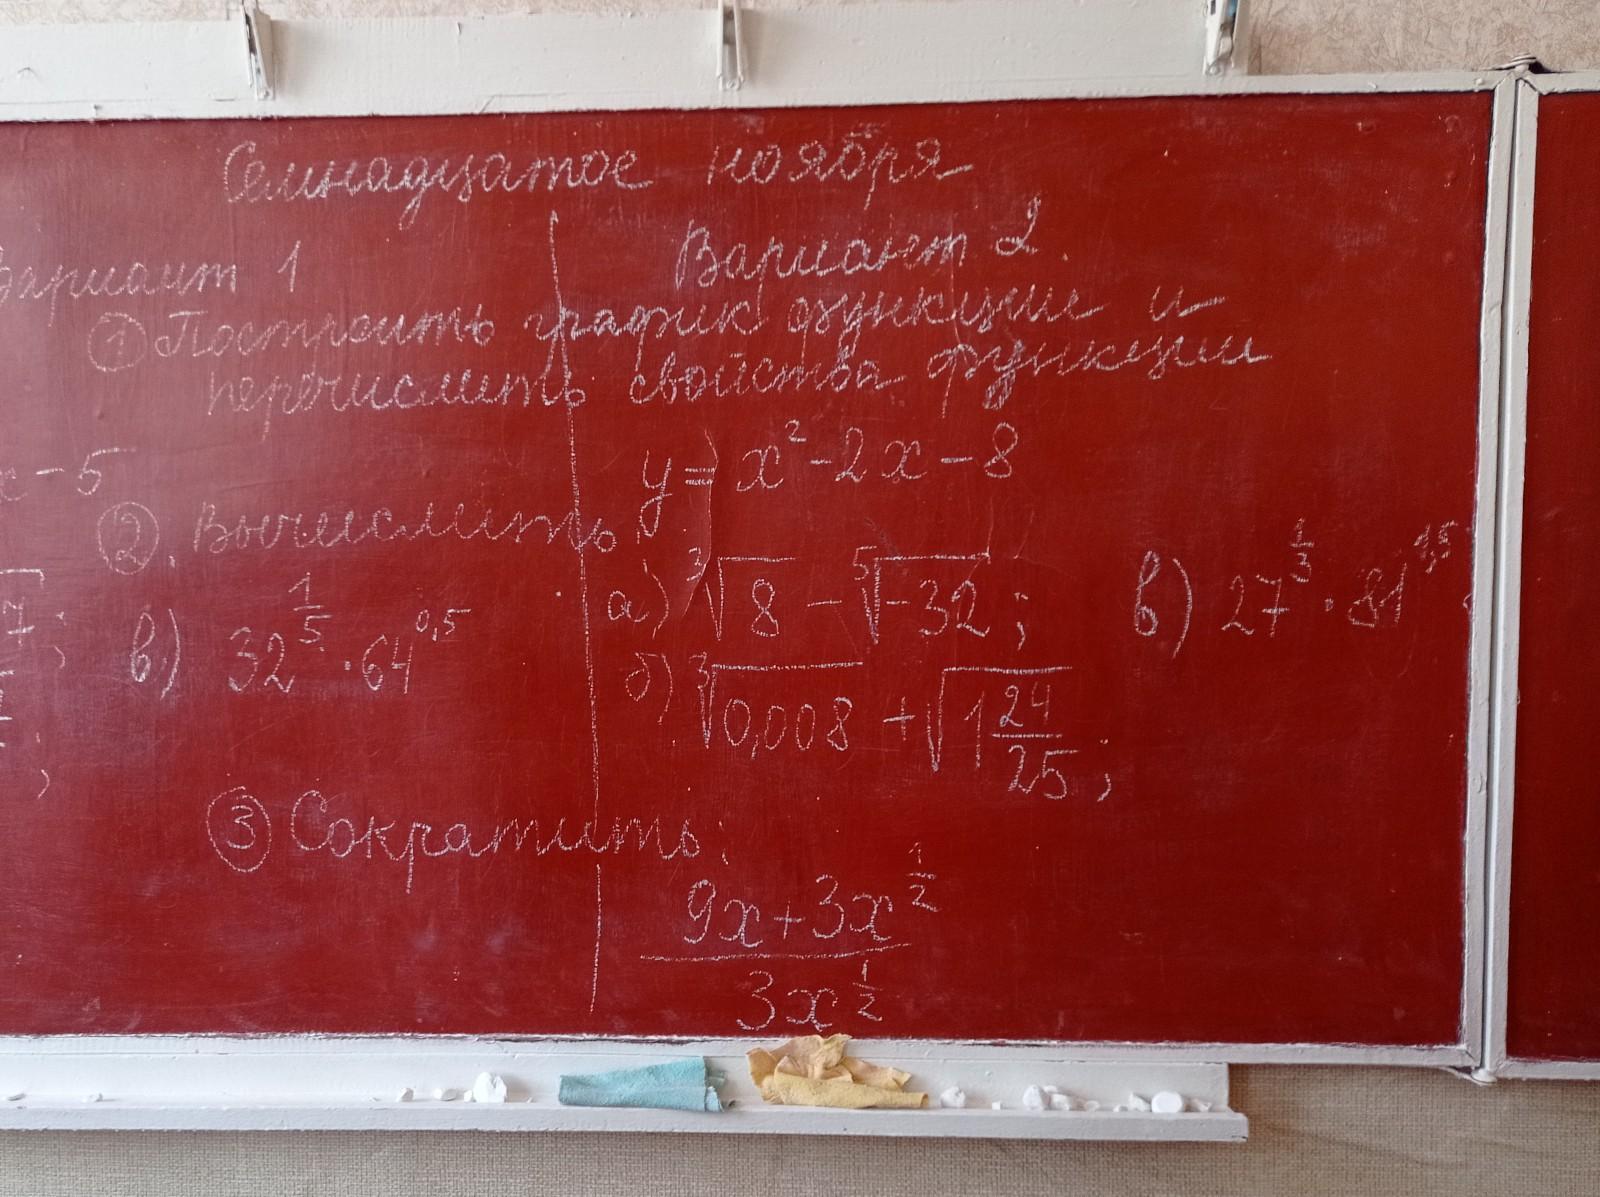 Семнадцатое ноября
Вариант 1
Вариант 2.
① Построить график функции и
перечислить свойства функции
x - 5
y = x² - 2x - 8
② . Вычислить
7;
в) 32^(1/5) · 64^(0,5)
а) ³√8 - ⁵√-32 ;
в) 27^(1/3) · 81
;
б) ³√0,008 + √1 24/25 ;
③ Сократить:
(9x + 3x^(1/2)) / (3x^(1/2))